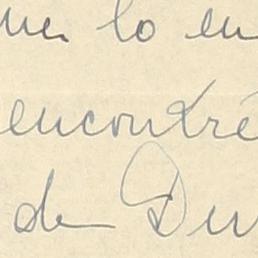 me lo en
encontré
de Du